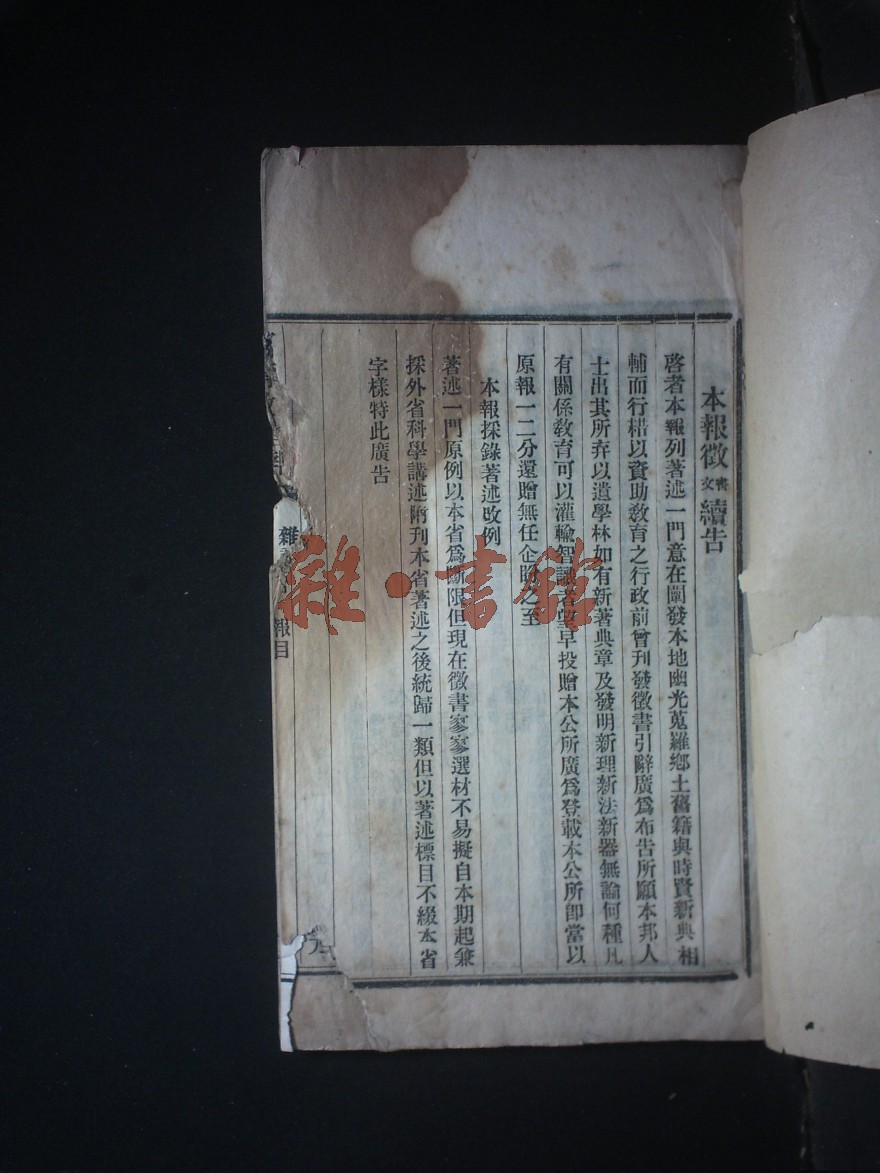 本報徵書文續告
啓者本報列著述一門意在闡發本地幽光蒐羅鄉土舊籍與時賢新典相
輔而行藉以資助敎育之行政前曾刊發徵書引辭廣爲布告所願本邦人
士出其所弆以遺學林如有新著典章及發明新理新法新器無論何種凡
有關係敎育可以灌輸智識者望早投贈本公所廣爲登載本公所卽當以
原報一二分還贈無任企盼之至
本報採錄著述改例
著述一門原例以本省爲斷限但現在徵書寥寥選材不易擬自本期起兼
採外省科學講述附刊本省著述之後統歸一類但以著述標目不綴本省
字樣特此廣告
雜
報目
雜·書館